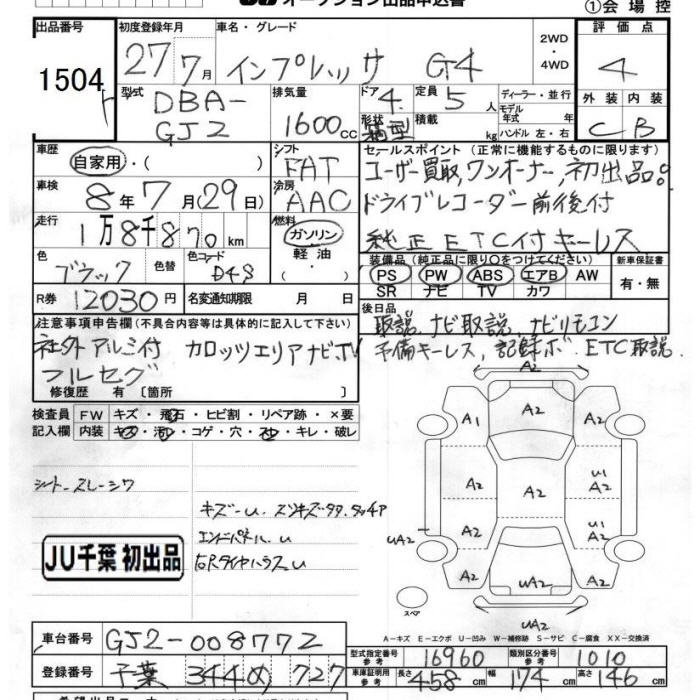 オークション出品申込書 ①会場控
出品番号 初度登録年月 車名・グレード 2WD・4WD 評価点
1504 27 7月 インプレッサ G4 4
型式 DBA-GJ2 排気量 1600cc ドア 4 定員 5人 ディーラー・並行
形状 箱型 積載 kg モデル年式 年式 ハンドル 左・右 外装 C 内装 B
車歴 自家用・( ) シフト FAT セールスポイント(正常に機能するものに限ります)
ユーザー買取,ワンオーナー 初出品。
車検 8年7月(29日) 冷房 AAC ドライブレコーダー前後付
走行 1万8千870km 燃料 ガソリン・軽油・( ) 純正ETC付キーレス
色 ブラック 色替 色コード D4S 装備品(純正品に限り○をつけてください) 新車保証書
PS PW ABS エアB AW 有・無
SR ナビ TV カワ
R券 12030円 名変通知期限 月 日
注意事項申告欄(不具合内容等は具体的に記入して下さい) 後日品
社外アルミ付 カロッツェリアナビ,TV 取説,ナビ取説,ナビリモコン
フルセグ 予備キーレス,記録ボ,ETC取説
修復歴 有 〔箇所 〕
検査員 FW キズ・飛石・ヒビ割・リペア跡・×要
記入欄 内装 キズ・汚れ・コゲ・穴・スレ・キレ・破レ
A2
A1 A2 A2
シート スレ-シワ A2 A2 U1 A2
キズ-U.
エンドパネルU A2 U1 A2
UA2
JU千葉 初出品
A2 UA2 A2
スペア UA2
A-キズ E-エクボ U-凹み W-補修跡 S-サビ C-腐食 XX-交換済
車台番号 GJ2-008772 型式指定番号 参考 16960 類別区分番号 参考 1010
登録番号 千葉 344 め 727 車庫証明用 参考 長さ 458cm 幅 174cm 高さ 146cm